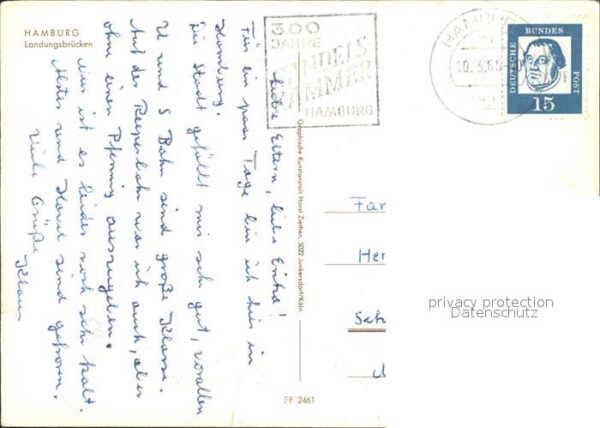 HAMBURG
Landungsbrücken
300
JAHRE
HANDELS
KAMMER
HAMBURG
HAMBURG
10.3.65
DEUTSCHE BUNDESPOST
15
Liebe Eltern, liebe
Für ein paar Tage bin ich hier in
Hamburg.
Die Stadt gefällt mir sehr gut, vorallem
U und S Bahn sind große Klasse.
Auf der Reeperbahn war ich auch, aber
ohne einen Pfennig auszugeben.
Nur ist es leider noch sehr kalt.
Alster und Kanal sind gefroren.
Viele Grüße
Klaus
Graphische Kunstanstalt Horst Ziethen, 5022 Junkersdorf/Köln
PF 2461
Fam
Her
privacy protection
Datenschutz